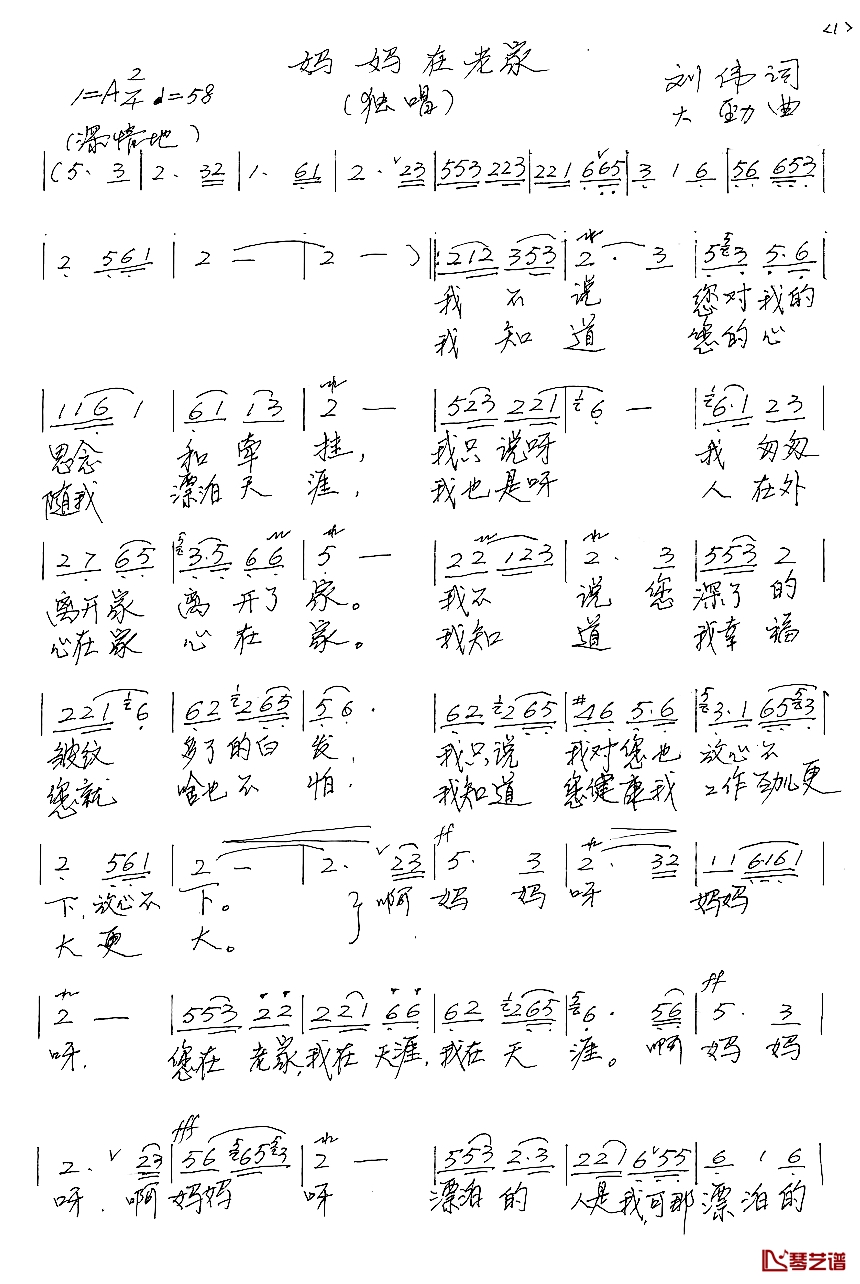 <1>
妈妈在老家
1=A 2/4 ♩=58
(独唱)
刘伟词
大勁曲
(深情地)
|(5· 3|2· 32|1· 61|2· ∨23|553 223|221 6∨65|3 1 6|56 653|
|2 561|2 —|2 —)|:212 353|2· 3|553 5·6|
我不说 您对我的
我知道 您的心
|116 1|61 13|2 —|523 221|16 —|16·1 23|
思念 和牵挂, 我只说呀 我匆匆
随我 漂泊天涯, 我也是呀 人在外
|27 65|53·5 66|5 —|22 123|2· 3|553 2|
离开家 离开了家。 我不说您深了的
心在家 心在家。 我知道 我幸福
|221 16|62 1265|56·|62 1265|#46 5·6|53·1 6553|
皱纹 多了的白发, 我只说 我对您也放心不
您就 啥也不怕. 我知道 您健康我工作劲儿更
|2 561|2 —|2· ∨23|5· 3|2· 32|11 6161|
ff
下,放心不下。 啊妈妈呀 妈妈
大更大。
|2 —|553 22|221 66|62 1265|56· 56|5· 3|
ff
呀, 您在老家,我在天涯,我在天涯。啊妈妈
|2· ∨23|56 56553|2 —|553 2·3|221 6∨55|6 1 6|
fff
呀.啊妈妈呀 漂泊的人是我,可那漂泊的
琴艺谱